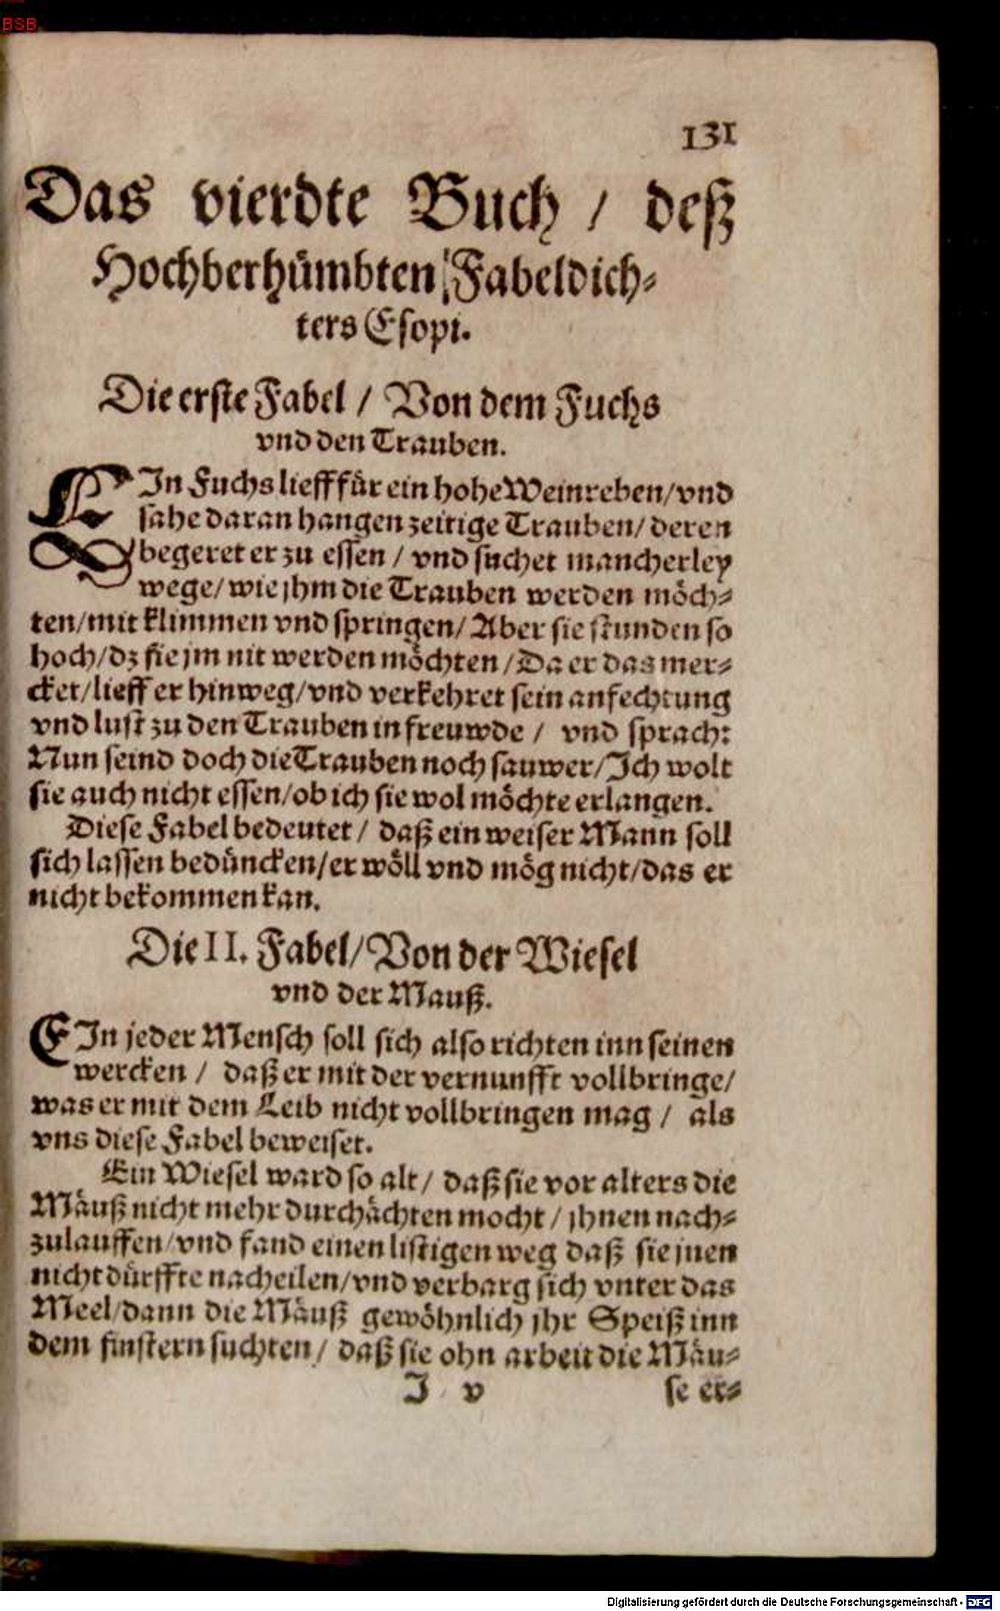 BSB
131
Das vierdte Buch / deß
Hochberhümbten Fabeldich-
ters Esopi.
Die erste Fabel / Von dem Fuchs
vnd den Trauben.
EIn Fuchs lieff für ein hohe Weinreben/vnd
sahe daran hangen zeitige Trauben/ deren
begeret er zu essen / vnd suchet mancherley
wege/ wie jhm die Trauben werden möch-
ten/mit klimmen vnd springen/ Aber sie stunden so
hoch/dz sie jm nit werden möchten /Da er das mer-
cket/lieff er hinweg/vnd verkehret sein anfechtung
vnd lust zu den Trauben in freuwde / vnd sprach:
Nun seind doch die Trauben noch sauwer/Ich wolt
sie auch nicht essen/ob ich sie wol möchte erlangen.
Diese Fabel bedeutet / daß ein weiser Mann soll
sich lassen bedüncken/er wöll vnd mög nicht/das er
nicht bekommen kan.
Die II. Fabel/Von der Wiesel
vnd der Mauß.
EIn jeder Mensch soll sich also richten inn seinen
wercken / daß er mit der vernunfft vollbringe/
was er mit dem Leib nicht vollbringen mag / als
vns diese Fabel beweiset.
Ein Wiesel ward so alt/ daß sie vor alters die
Mäuß nicht mehr durchächten mocht / jhnen nach-
zulauffen/vnd fand einen listigen weg daß sie jnen
nicht dürffte nacheilen/vnd verbarg sich vnter das
Meel/dann die Mäuß gewöhnlich jhr Speiß inn
dem finstern suchten/ daß sie ohn arbeit die Mäu-
I v se er-
Digitalisierung gefördert durch die Deutsche Forschungsgemeinschaft - DFG